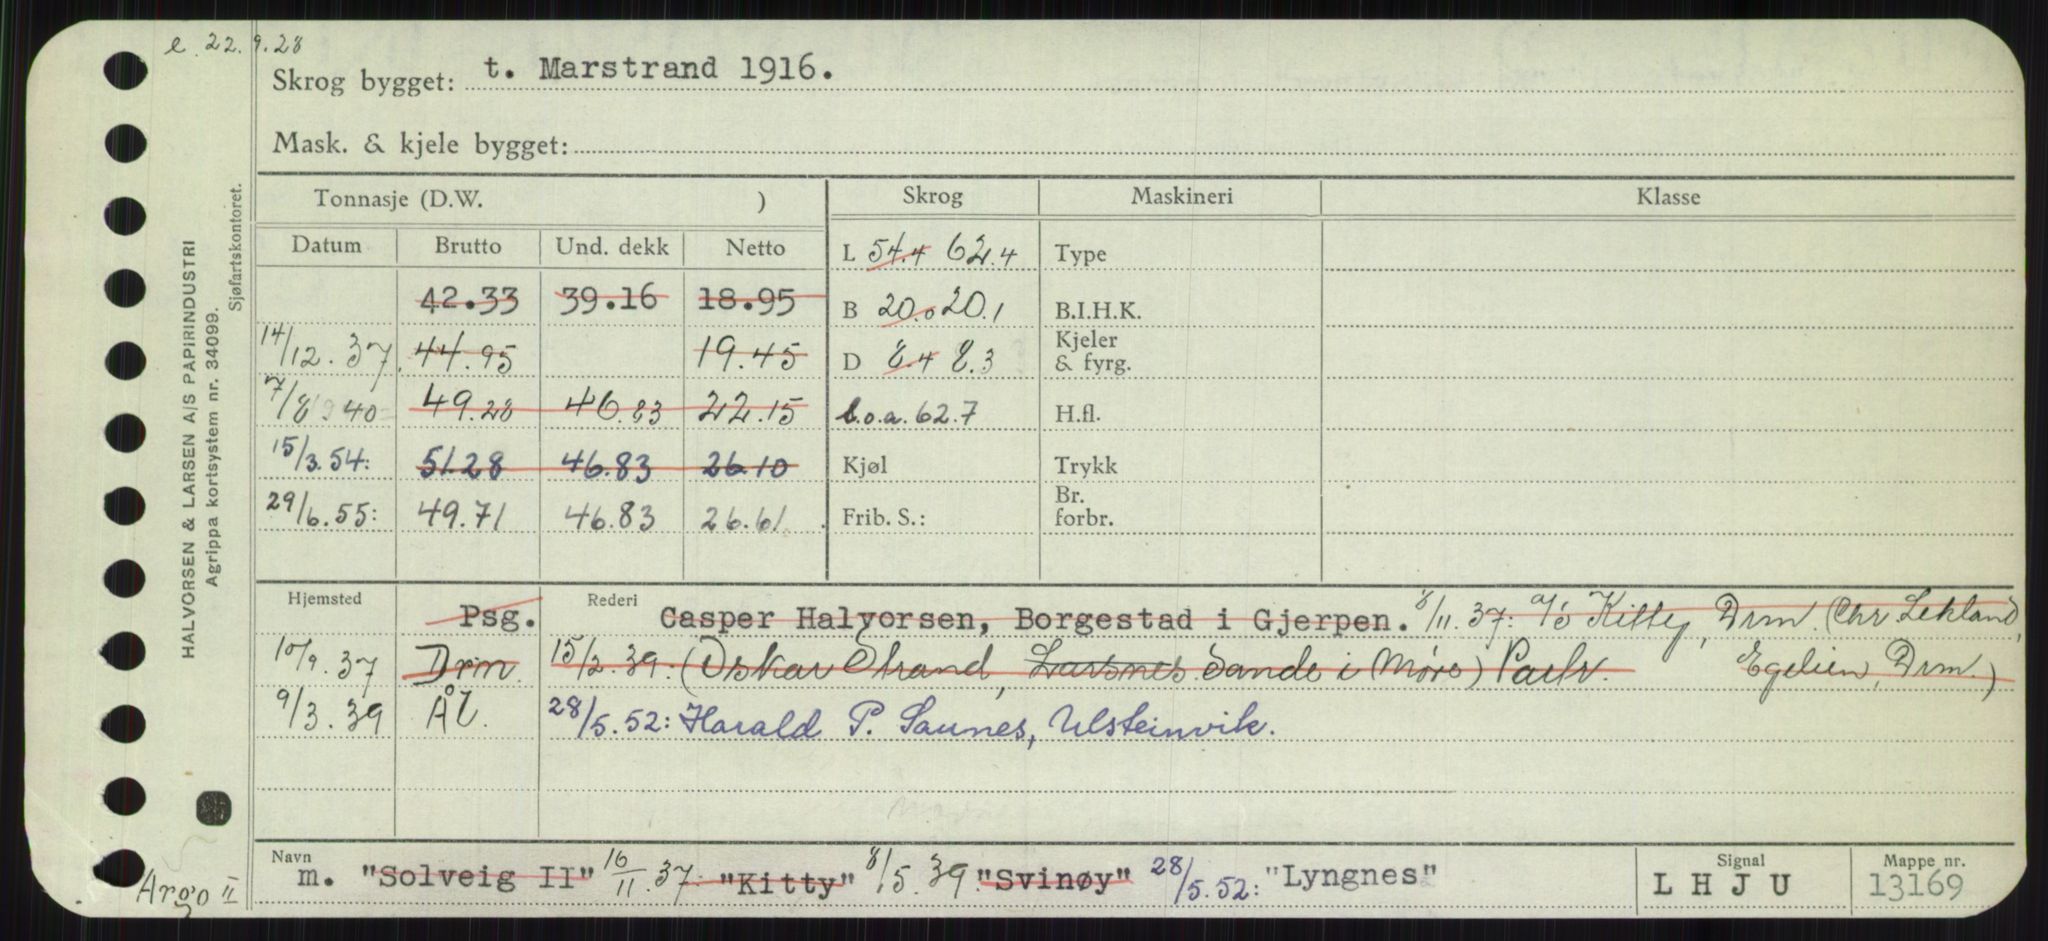 e. 22.9.28
Skrog bygget: t. Marstrand 1916.
Mask. & kjele bygget:
Tonnasje (D.W. ) Skrog Maskineri Klasse
Datum Brutto Und. dekk Netto L 54.4 62.4 Type
42.33 39.16 18.95 B 20.0 20.1 B.I.H.K.
14/12.37 44.95 19.45 D 8.4 8.3 Kjeler & fyrg.
7/8 40 49.28 46.83 22.15 l.o.a. 62.7 H.fl.
15/3.54: 51.28 46.83 26.10 Kjøl Trykk
29/6.55: 49.71 46.83 26.61 Frib. S.: Br. forbr.
Hjemsted Psg. Rederi Casper Halvorsen, Borgestad i Gjerpen. 8/11.37: a/s Kitty, Drm. (Chr. Lekland,
10/9.37 Drm. 15/2.39: (Oskar Strand, Larsnes Sande i Møre) Partr. Egelien, Drm.)
9/3.39 Ål. 28/5.52: Harald P. Saunes, Ulsteinvik.
Navn m. "Solveig II" 16/11.37: "Kitty" 8/5.39 "Svinøy" 28/5.52: "Lyngnes" Signal LHJU Mappe nr. 13169
Argo II
HALVORSEN & LARSEN A/S PAPIRINDUSTRI
Agrippa kortsystem nr. 34099.
Sjøfartskontoret.